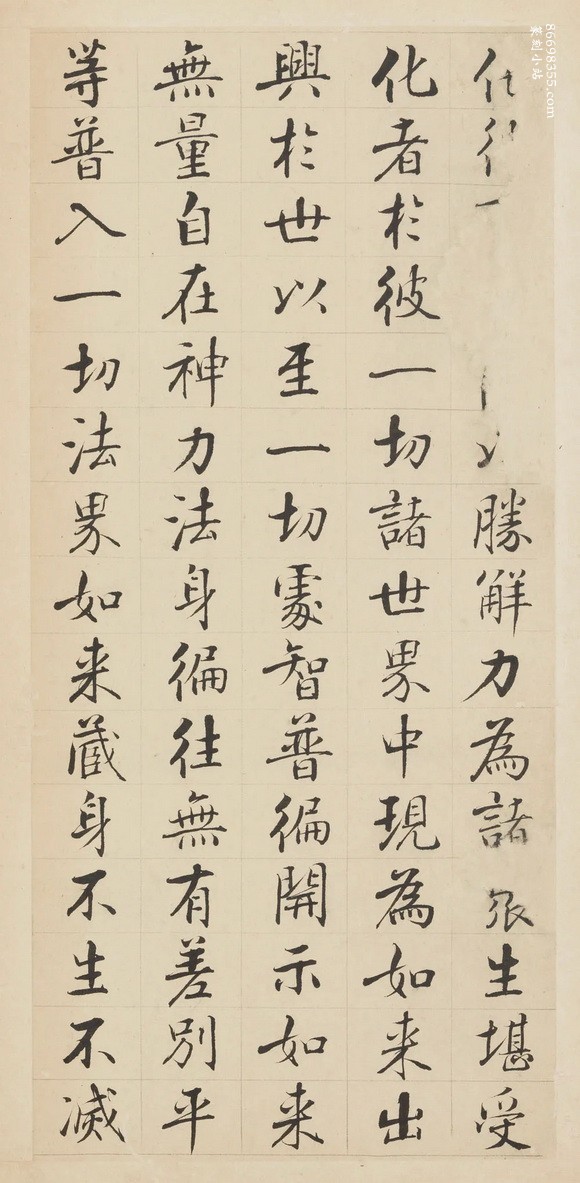 勝解力為諸眾生堪受
化者於彼一切諸世界中現為如来出
興於世以至一切處智普徧開示如来
無量自在神力法身徧往無有差別平
等普入一切法界如来藏身不生不滅
86698355.com
篆刻小站